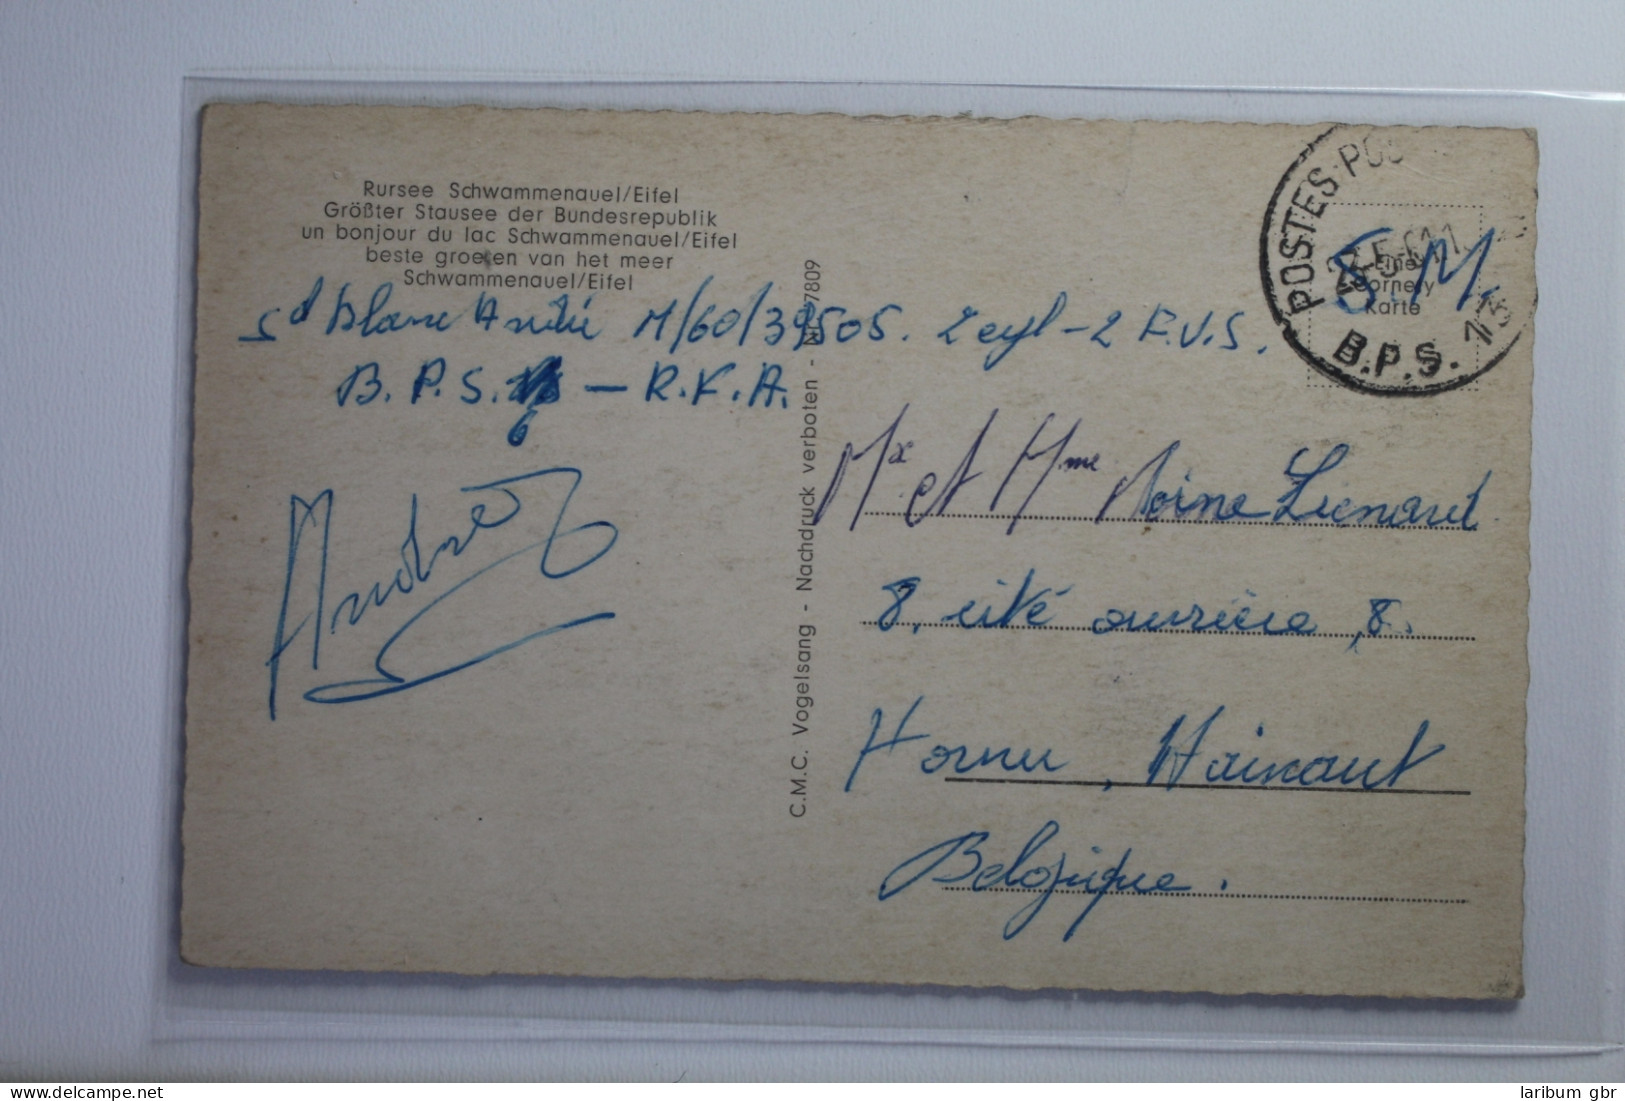 Rursee Schwammenauel/Eifel
Größter Stausee der Bundesrepublik
un bonjour du lac Schwammenauel/Eifel
beste groeten van het meer
Schwammenauel/Eifel
Sd Blanc André M/60/39505. 2 cyl - 2 F.U.S.
B.P.S. 6 - R.F.A.
André
C.M.C. Vogelsang - Nachdruck verboten - 7809
POSTES-POS
-5-61
B.P.S. 13
S.M.
Eine
Cornely
Karte
Mr et Mme Moine Lienard
8, cité ouvrière, 8.
Hornu, Hainaut
Belgique.
www.delcampe.net
laribum gbr